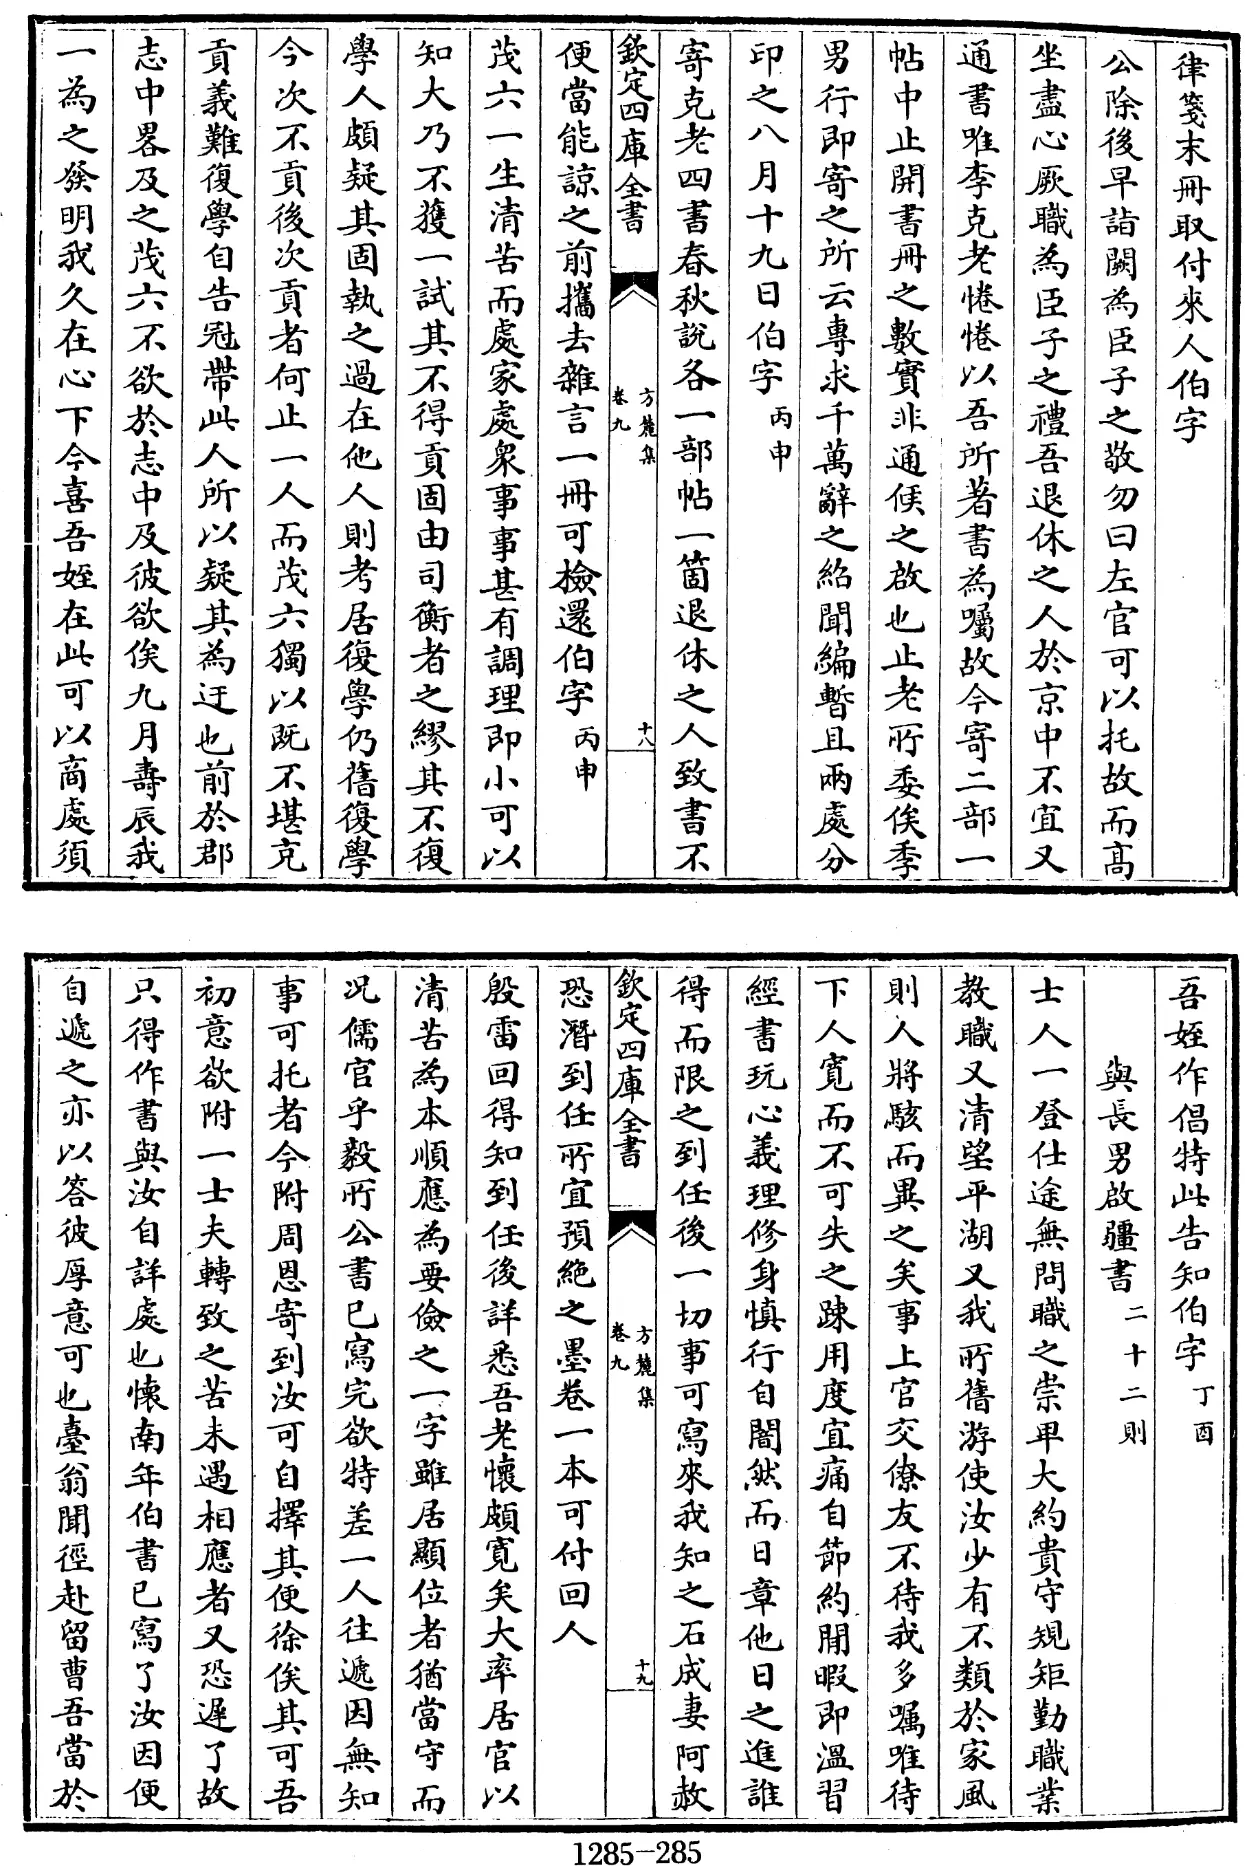 律箋末冊取付來人伯字
公除後早詣闕為臣子之敬勿曰左官可以托故而高
坐盡心厥職為臣子之禮吾退休之人於京中不宜又
通書唯李克老惓惓以吾所著書為囑故今寄二部一
帖中止開書冊之數實非通候之啟也止老所委俟季
男行即寄之所云專求千萬辭之紿聞編暫且兩處分
印之八月十九日伯字丙申
寄克老四書春秋說各一部帖一箇退休之人致書不
欽定四庫全書
方麓集
卷九
十八
便當能諒之前攜去雜言一冊可檢還伯字丙申
茂六一生清苦而處家處衆事事甚有調理即小可以
知大乃不獲一試其不得貢固由司衡者之繆其不復
學人頗疑其固執之過在他人則考居復學仍舊復學
今次不貢後次貢者何止一人而茂六獨以既不堪充
貢義難復學自告冠帶此人所以疑其為迂也前於郡
志中畧及之茂六不欲於志中及彼欲俟九月壽辰我
一為之發明我久在心下今喜吾姪在此可以商處須
吾姪作倡特此告知伯字丁酉
與長男啟疆書二十二則
士人一登仕途無問職之崇卑大約貴守規矩勤職業
教職又清望平湖又我所舊游使汝少有不類於家風
則人將駭而異之矣事上官交僚友不待我多囑唯待
下人寬而不可失之踈用度宜痛自節約閒暇即溫習
經書玩心義理修身慎行自闇然而日章他日之進誰
得而限之到任後一切事可寫來我知之石成妻阿赦
欽定四庫全書
方麓集
卷九
十九
恐潛到任所宜預絶之墨卷一本可付回人
殷雷回得知到任後詳悉吾老懷頗寬矣大率居官以
清苦為本順應為要儉之一字雖居顯位者猶當守而
况儒官乎毅所公書已寫完欲特差一人往遞因無知
事可托者今附周恩寄到汝可自擇其便徐俟其可吾
初意欲附一士夫轉致之苦未遇相應者又恐遲了故
只得作書與汝自詳處也懷南年伯書已寫了汝因便
自遞之亦以答彼厚意可也臺翁聞徑赴留曹吾當於
1285-285